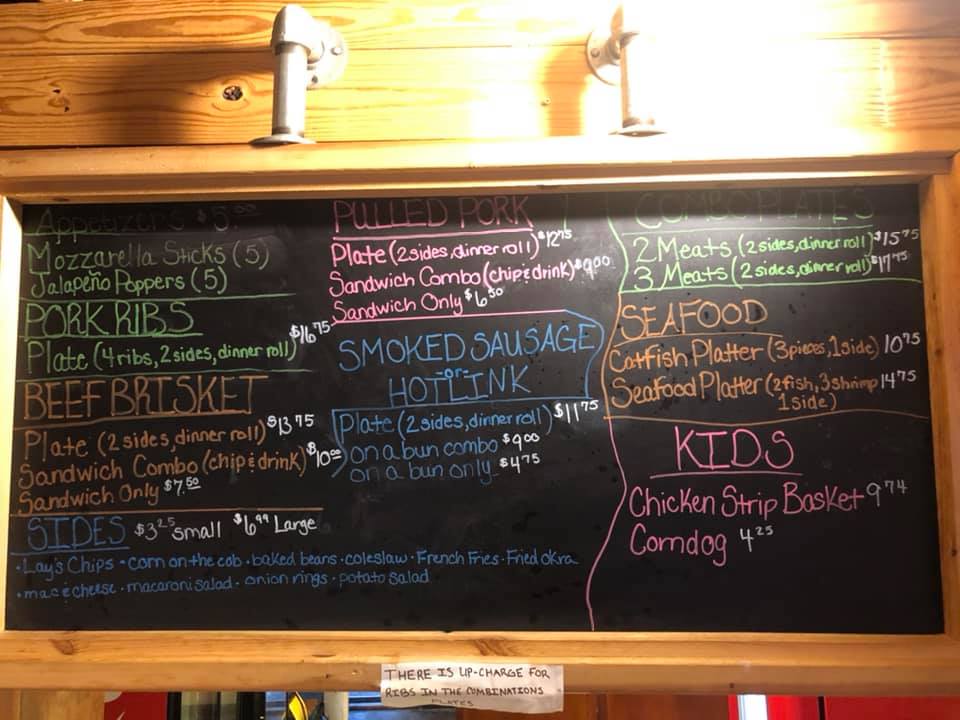 Appetizers $5.00
Mozzarella Sticks (5)
Jalapeño Poppers (5)
PORK RIBS
$16.75
Plate (4 ribs, 2 sides, dinner roll)
BEEF BRISKET
Plate (2 sides, dinner roll) $13.75
Sandwich Combo (chip & drink) $10.00
Sandwich Only $7.50
SIDES $3.25 small $6.99 Large
• Lay's Chips • corn on the cob • baked beans • coleslaw • French Fries • Fried Okra
• mac & cheese • macaroni salad • onion rings • potato salad
PULLED PORK
Plate (2 sides, dinner roll) $12.75
Sandwich Combo (chip & drink) $9.00
Sandwich Only $6.50
SMOKED SAUSAGE
-or-
HOTLINK
Plate (2 sides, dinner roll) $11.75
on a bun combo $9.00
on a bun only $4.75
COMBO PLATES
2 Meats (2 sides, dinner roll) $15.75
3 Meats (2 sides, dinner roll) $17.75
SEAFOOD
Catfish Platter (3 pieces, 1 side) 10.75
Seafood Platter (2 fish, 3 shrimp 14.75
1 side)
KIDS
Chicken Strip Basket 9.74
Corndog 4.25
THERE IS UP-CHARGE FOR
RIBS IN THE COMBINATIONS
PLATES